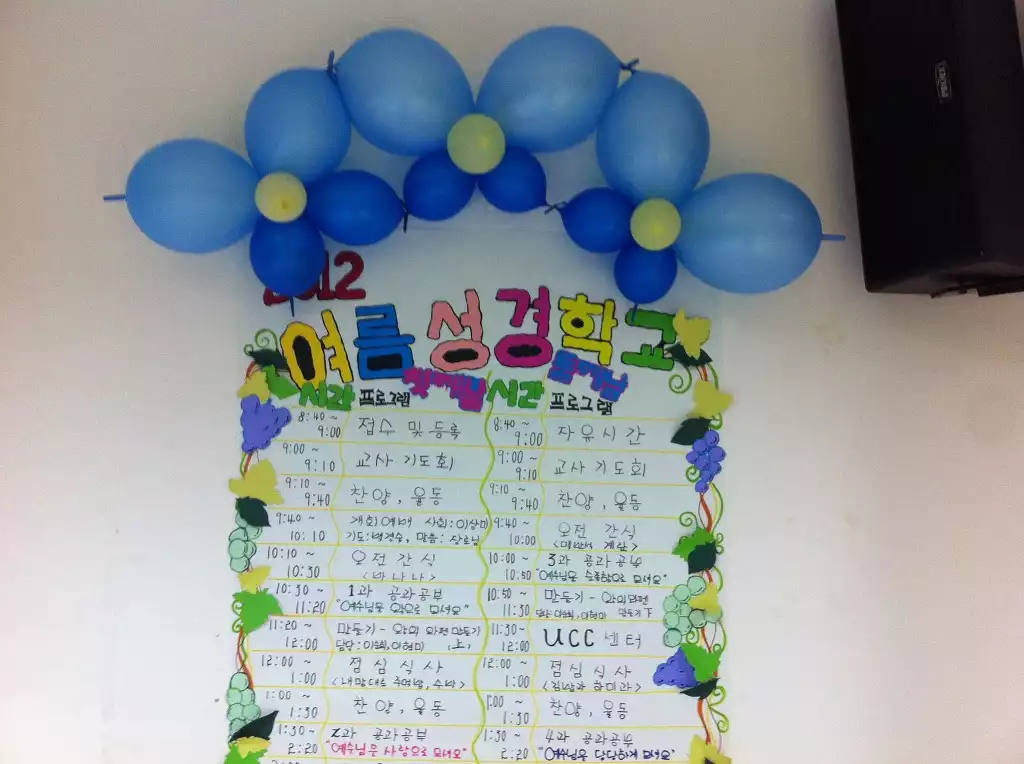 2012
여름성경학교
첫째날 둘째날
시간 프로그램 시간 프로그램
8:40~ 9:00 접수 및 등록 8:40~ 9:00 자유시간
9:00~ 9:10 교사 기도회 9:00~ 9:10 교사 기도회
9:10~ 9:40 찬양, 율동 9:10~ 9:40 찬양, 율동
9:40~ 10:10 개회예배 사회:이상미 9:40~ 10:00 오전 간식
기도: 말씀: 장로님
10:10~ 10:30 오전 간식 10:00~ 10:50 3과 공과공부
<바나나> "예수님을 으로 모셔요"
10:30~ 11:20 1과 공과공부 10:50~ 11:30 만들기-
"예수님을 왕으로 모셔요" 담당: 이현미 만들기 下
11:20~ 12:00 만들기- 만들기 11:30~ 12:00 UCC 센터
담당: 이현미 上
12:00~ 1:00 점심식사 12:00~ 1:00 점심식사
<내맘대로 주먹밥, 수박>
1:00~ 1:30 찬양, 율동 1:00~ 1:30 찬양, 율동
1:30~ 2:20 2과 공과공부 1:30~ 2:20 4과 공과공부
"예수님을 사랑으로 모셔요" "예수님을 당당하게 모셔요"